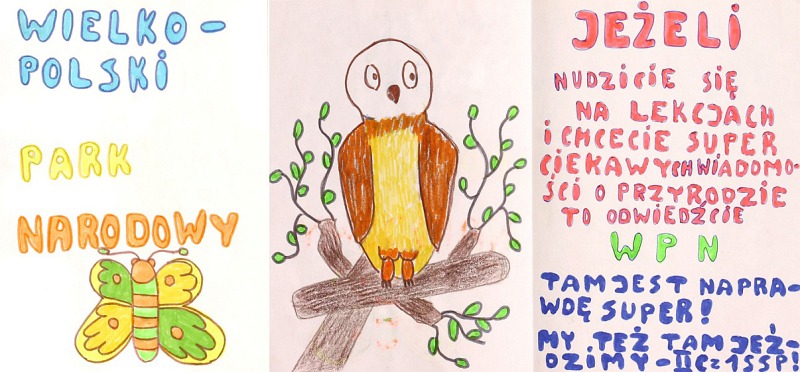 WIELKO-
POLSKI
PARK
NARODOWY
JEŻELI
NUDZICIE SIĘ
NA LEKCJACH
I CHCECIE SUPER
CIEKAWYCH WIADOMO-
ŚCI O PRZYRODZIE
TO ODWIEDŹCIE
WPN
TAM JEST NAPRA-
WDĘ SUPER!
MY TEŻ TAM JEŹ-
DZIMY - II C z 1SSP!